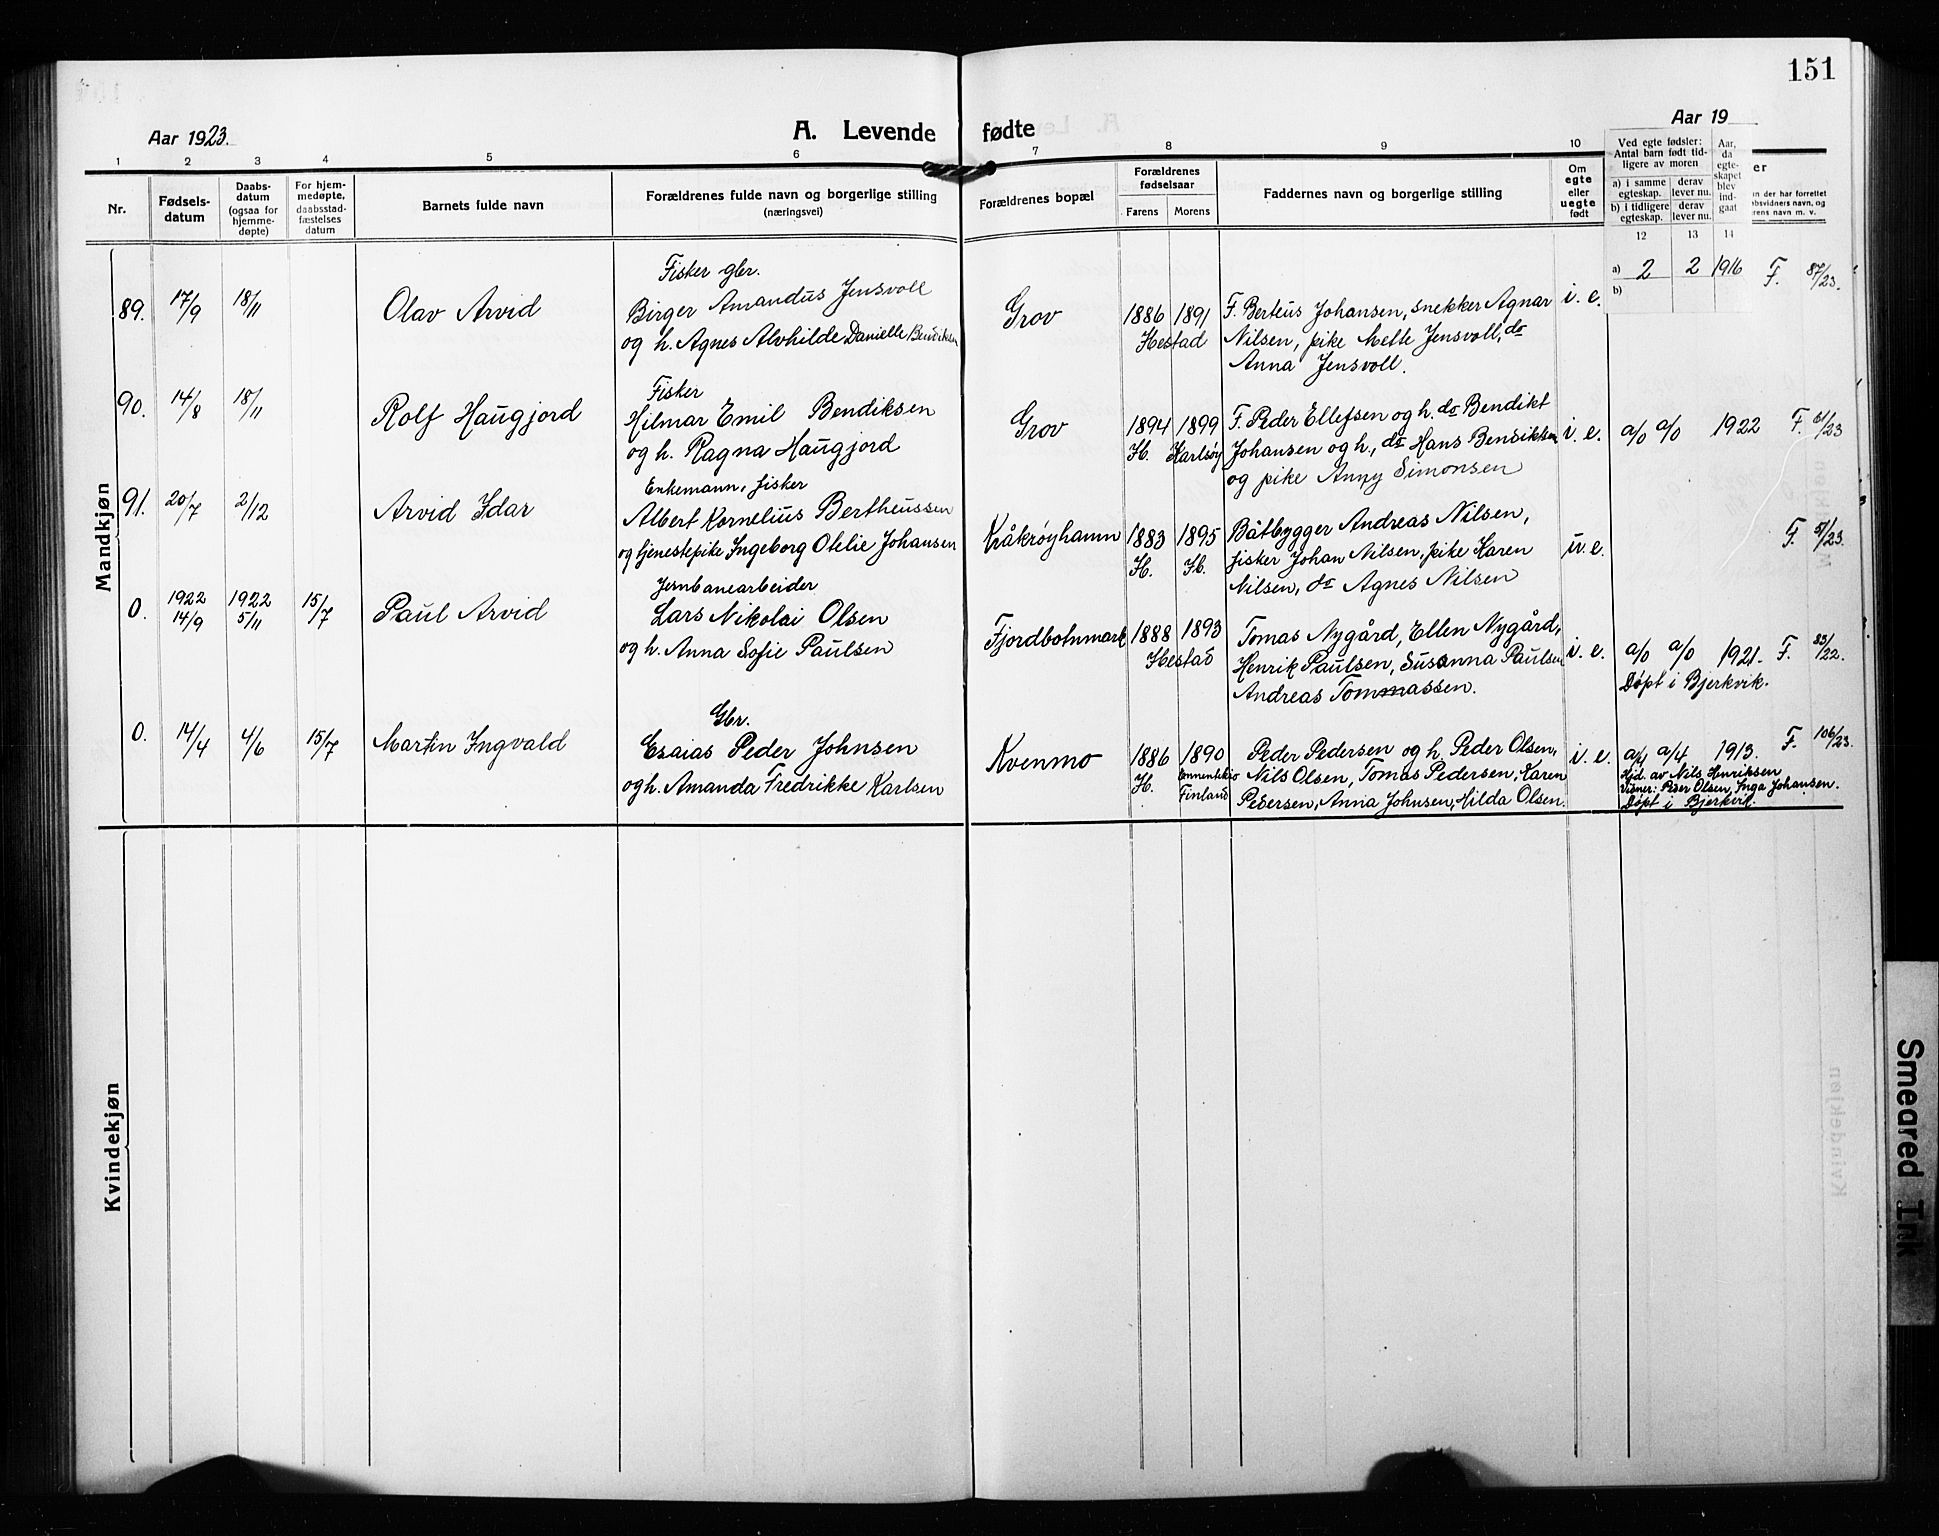 151
Aar 1923.
A. Levende fødte
Aar 19
1 2 3 4 5 6 7 8 9 10
Nr.
Fødsels-
datum
Daabs-
datum
(ogsaa for
hjemme-
døpte)
For hjem-
medøpte,
daabsstad-
fæstelses
datum
Barnets fulde navn
Forældrenes fulde navn og borgerlige stilling
(næringsvei)
Forældrenes bopæl
Forældrenes
fødselsaar
Farens Morens
Faddernes navn og borgerlige stilling
Om
egte
eller
uegte
født
Ved egte fødsler:
Antal barn født tid-
ligere av moren
a) i samme
egteskap.
derav
lever nu.
b) i tidligere
egteskap.
derav
lever nu.
Aar,
da
egte-
skapet
blev
ind-
gaat
12 13 14
er
n der har forrettet
bsvidners navn, og
rens navn m. v.
Mandkjøn
89. 17/9 18/11 Olav Arvid
Fisker gbr.
Birger Amandus Jensvoll
og h. Agnes Alvhilde Danielle Bendiksen
Grov
1886 1891
Hestad
F. Berteus Johansen, snekker Agnar
Nilsen, pike Mette Jensvoll, do
Anna Jensvoll.
i. e.
a) 2 2 1916 F. 87/23.
b)
90. 14/8 18/11 Rolf Haugjord
Fisker
Hilmar Emil Bendiksen
og h. Ragna Haugjord
Grov
1894 1899
H. Karlsøy
F. Peder Ellefsen og h. do Bendikt
Johansen og h., do Hans Bendiksen
og pike Anny Simonsen
i. e. a/0 a/0 1922 F. /23
91. 20/7 2/12 Arvid Idar
Enkemann, fisker
Albert Kornelius Bertheussen
og tjenestepike Ingeborg Otelie Johansen
Kråkrøyhamn
1883 1895
H. H.
Båtbygger Andreas Nilsen,
fisker Johan Nilsen, pike Karen
Nilsen, do Agnes Nilsen
u. e. F. /23.
0. 1922 1922
14/9 5/11 15/7 Paul Arvid
Jernbanearbeider
Lars Nikolai Olsen
og h. Anna Sofie Paulsen
Fjordbotnmark
1888 1893
Hestad
Tomas Nygård, Ellen Nygård,
Henrik Paulsen, Susanna Paulsen
Andreas Tommassen.
i. e. a/0 a/0 1921. F. 83/22.
Døpt i Bjerkvik.
0. 14/4 4/6 15/7 Martin Ingvald
Gbr.
Esaias Peder Johnsen
og h. Amanda Fredrikke Karlsen
Kvenmo
1886 1890
H.
Finland
Peder Pedersen og h. Peder Olsen,
Nils Olsen, Tomas Pedersen, Karen
Pedersen, Anna Johnsen, Hilda Olsen.
i. e. a/4 a/4 1913. F. 106/23.
Hjd. av Nils Henriksen
Vidner: Peder Olsen, Inga Johansen.
Døpt i Bjerkvik.
Kvindekjøn
Smeared Ink